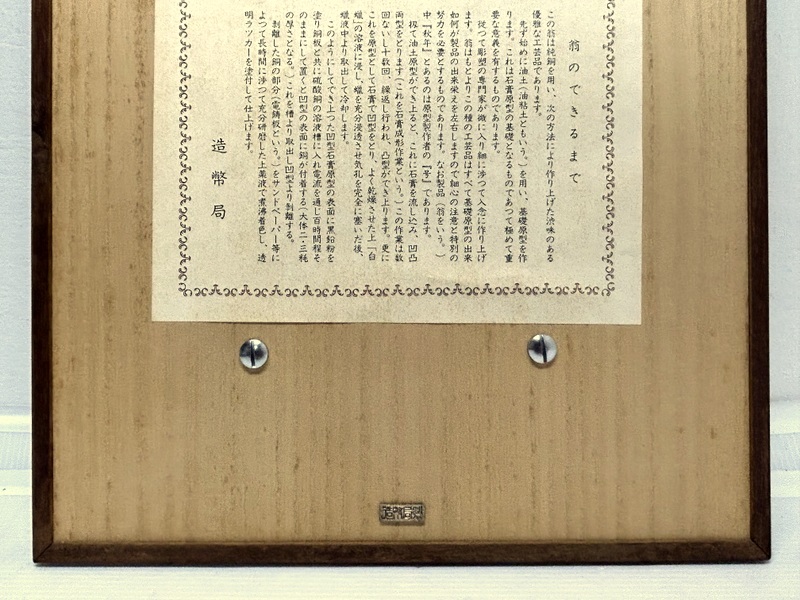 翁のできるまで
この翁は純銅を用い、次の方法により作り上げた渋味のある
優雅な工芸品であります。
先ず始めに油土(油粘土ともいう。)を用い、基礎原型を作
ります。これは石膏原型の基礎となるものであつて極めて重
要な意義を有するものであります。
従つて彫塑の専門家が微に入り細に渉つて入念に作り上げ
ます。翁はもとよりこの種の工芸品はすべて基礎原型の出来
如何が製品の出来栄えを左右しますので細心の注意と特別の
努力を必要とするものであります。なお製品(翁をいう。)
中『秋年』とあるのは原型製作者の『号』であります。
扨て油土原型ができ上ると、これに石膏を流し込み、凹凸
両型をとります(これを石膏成形作業という。)この作業は数
回ないし十数回、繰返し行われ、凸型ができ上ります。更に
これを原型として石膏で凹型をとり、よく乾燥させた上「白
蠟」の溶液に浸し、蠟を充分浸透させ気孔を完全に塞いだ後、
蠟液中より取出して冷却します。
このようにしてでき上つた凹型石膏原型の表面に黒鉛粉を
塗り銅板と共に硫酸銅の溶液槽に入れ電流を通じ百時間程そ
のままにして置くと凹型の表面に銅が付着する(大体二・三粍
の厚さとなる。)これを槽より取出し凹型より剥離する。
剥離した銅の部分(電鋳板という。)をサンドペーパー等に
よつて長時間に渉つて充分研磨した上薬液で煮沸着色し、透
明ラツカーを塗付して仕上げます。
造幣局
造幣局製